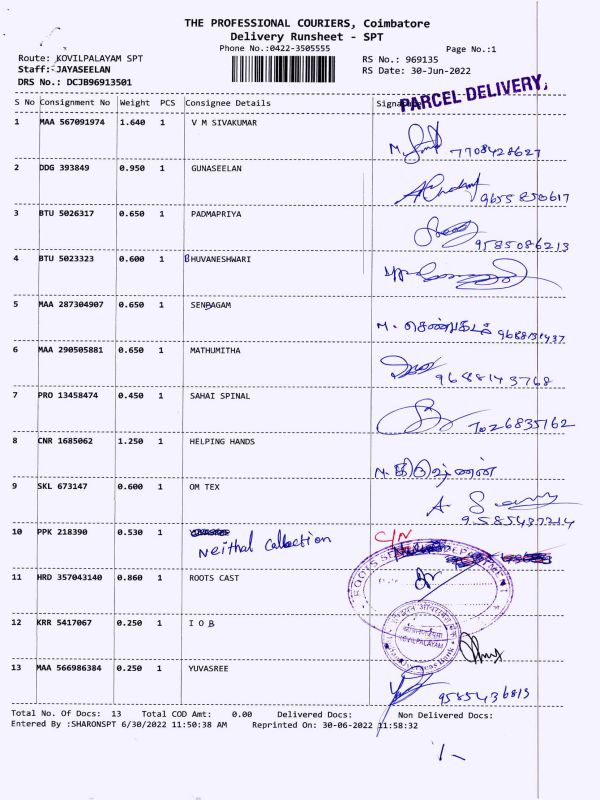 THE PROFESSIONAL COURIERS, Coimbatore
Delivery Runsheet - SPT
Phone No.:0422-3505555 Page No.:1
Route: KOVILPALAYAM SPT RS No.: 969135
Staff: JAYASEELAN RS Date: 30-Jun-2022
DRS No.: DCJB96913501
PARCEL DELIVERY
S No Consignment No Weight PCS Consignee Details
1 MAA 567091974 1.640 1 V M SIVAKUMAR
7708428627
2 DDG 393849 0.950 1 GUNASEELAN
9655 850617
3 BTU 5026317 0.650 1 PADMAPRIYA
9585086213
4 BTU 5023323 0.600 1 BHUVANESHWARI
5 MAA 287304907 0.650 1 SENBAGAM
9688131437
6 MAA 290505881 0.650 1 MATHUMITHA
9688143768
7 PRO 13458474 0.450 1 SAHAI SPINAL
7026835162
8 CNR 1685062 1.250 1 HELPING HANDS
9 SKL 673147 0.600 1 OM TEX
10 PPK 218390 0.530 1 Neithal Collection C/N
11 HRD 357043140 0.860 1 ROOTS CAST
12 KRR 5417067 0.250 1 I O B
KOVILPALAYAM
13 MAA 566986384 0.250 1 YUVASREE
9585436813
Total No. Of Docs: 13 Total COD Amt: 0.00 Delivered Docs: Non Delivered Docs:
Entered By :SHARONSPT 6/30/2022 11:50:38 AM Reprinted On: 30-06-2022 11:58:32